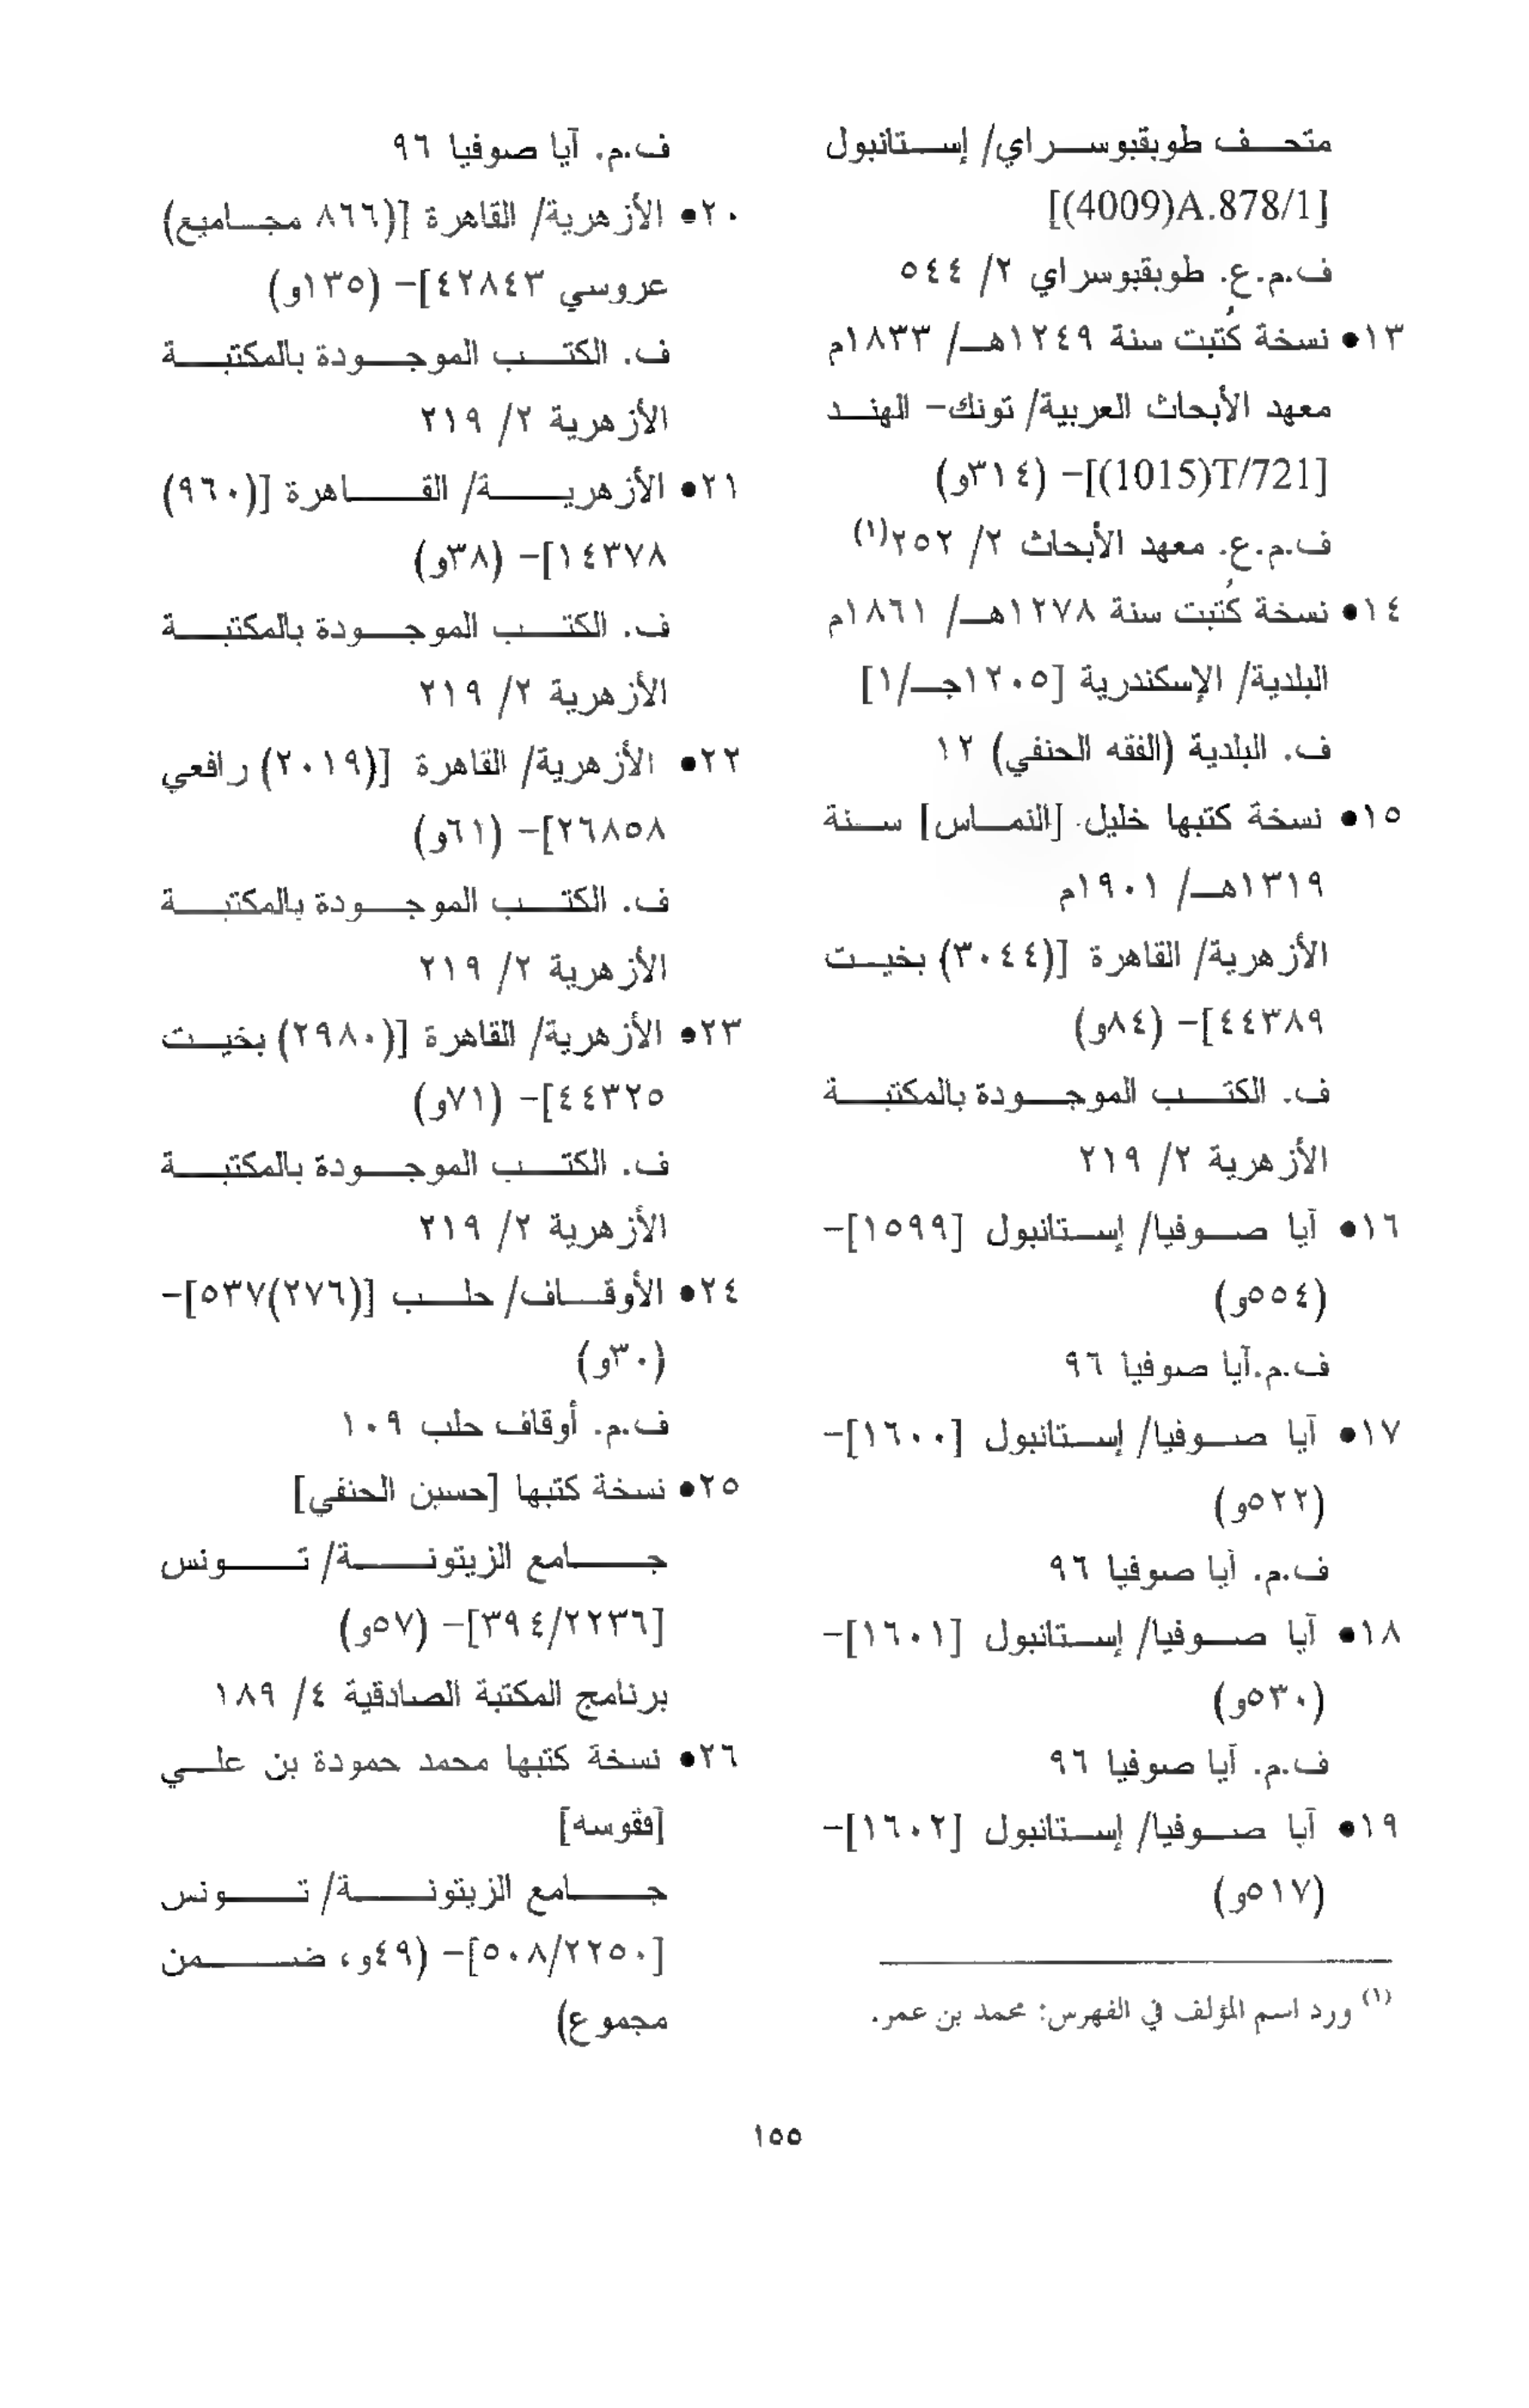 متحف طوبقبوسراي/ إستانبول
[(4009)A.878/1]
ف.م.ع. طوبقبوسراي ٢/ ٥٤٤
١٣● نسخة كُتبت سنة ١٢٤٩هـ/ ١٨٣٣م
معهد الأبحاث العربية/ تونك- الهند
[(1015)T/721]- (٣١٤و)
ف.م.ع. معهد الأبحاث ٢/ ٢٥٢(١)
١٤● نسخة كُتبت سنة ١٢٧٨هـ/ ١٨٦١م
البلدية/ الإسكندرية [١٢٠٥جـ/١]
ف. البلدية (الفقه الحنفي) ١٢
١٥● نسخة كتبها خليل [النماس] سنة
١٣١٩هـ/ ١٩٠١م
الأزهرية/ القاهرة [(٣٠٤٤) بخيت
٤٤٣٨٩]- (٨٤و)
ف. الكتب الموجودة بالمكتبة
الأزهرية ٢/ ٢١٩
١٦● آيا صوفيا/ إستانبول [١٥٩٩]-
(٥٥٤و)
ف.م.آيا صوفيا ٩٦
١٧● آيا صوفيا/ إستانبول [١٦٠٠]-
(٥٢٢و)
ف.م. آيا صوفيا ٩٦
١٨● آيا صوفيا/ إستانبول [١٦٠١]-
(٥٣٠و)
ف.م. آيا صوفيا ٩٦
١٩● آيا صوفيا/ إستانبول [١٦٠٢]-
(٥١٧و)
(١) ورد اسم المؤلف في الفهرس: محمد بن عمر.
ف.م. آيا صوفيا ٩٦
٢٠● الأزهرية/ القاهرة [(٨٦٦ مجاميع)
عروسي ٤٢٨٤٣]- (١٣٥و)
ف. الكتب الموجودة بالمكتبة
الأزهرية ٢/ ٢١٩
٢١● الأزهرية/ القاهرة [(٩٦٠)
١٤٣٧٨]- (٣٨و)
ف. الكتب الموجودة بالمكتبة
الأزهرية ٢/ ٢١٩
٢٢● الأزهرية/ القاهرة [(٢٠١٩) رافعي
٢٦٨٥٨]- (٦١و)
ف. الكتب الموجودة بالمكتبة
الأزهرية ٢/ ٢١٩
٢٣● الأزهرية/ القاهرة [(٢٩٨٠) بخيت
٤٤٣٢٥]- (٧١و)
ف. الكتب الموجودة بالمكتبة
الأزهرية ٢/ ٢١٩
٢٤● الأوقاف/ حلب [(٢٧٦)٥٣٧]-
(٣٠و)
ف.م. أوقاف حلب ١٠٩
٢٥● نسخة كتبها [حسين الحنفي]
جامع الزيتونة/ تونس
[٣٩٤/٢٢٣٦]- (٥٧و)
برنامج المكتبة الصادقية ٤/ ١٨٩
٢٦● نسخة كتبها محمد حمودة بن علي
[فقوسه]
جامع الزيتونة/ تونس
[٥٠٨/٢٢٥٠]- (٤٩و، ضمن
مجموع)
١٥٥